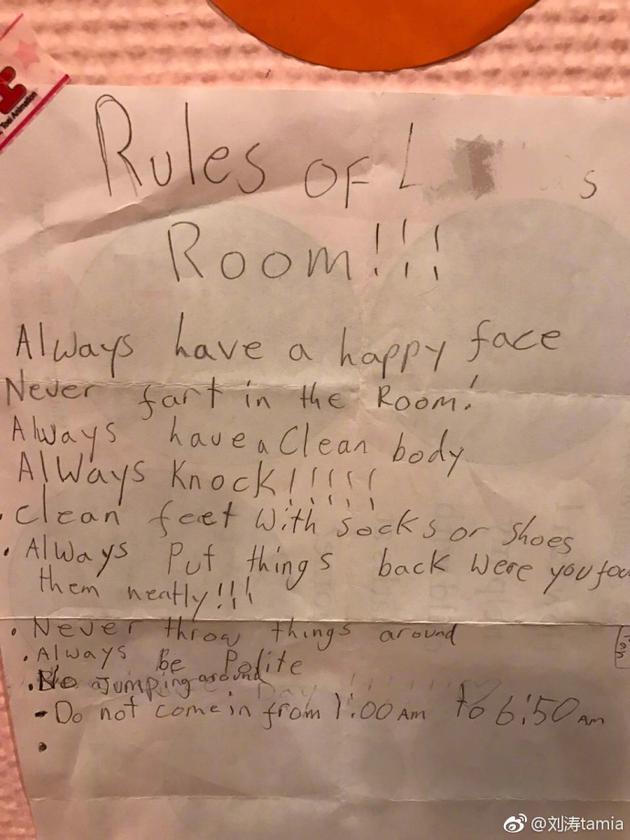 Rules OF L s
Room!!!
Always have a happy face
Never fart in the Room!
Always have a Clean body
AlWays Knock!!!!!
• Clean feet With socks or shoes
• Always Put things back were you fou
them neatly!!!
• Never throw things around
• Always Be Polite
• No Jumping around
- Do not come in from 1:00 Am to 6:50 Am
•
@刘涛tamia